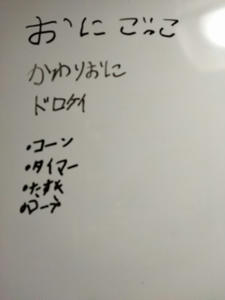 おにごっこ
かわりおに
ドロケイ
・コーン
・タイマー
・たすき
・ロープ